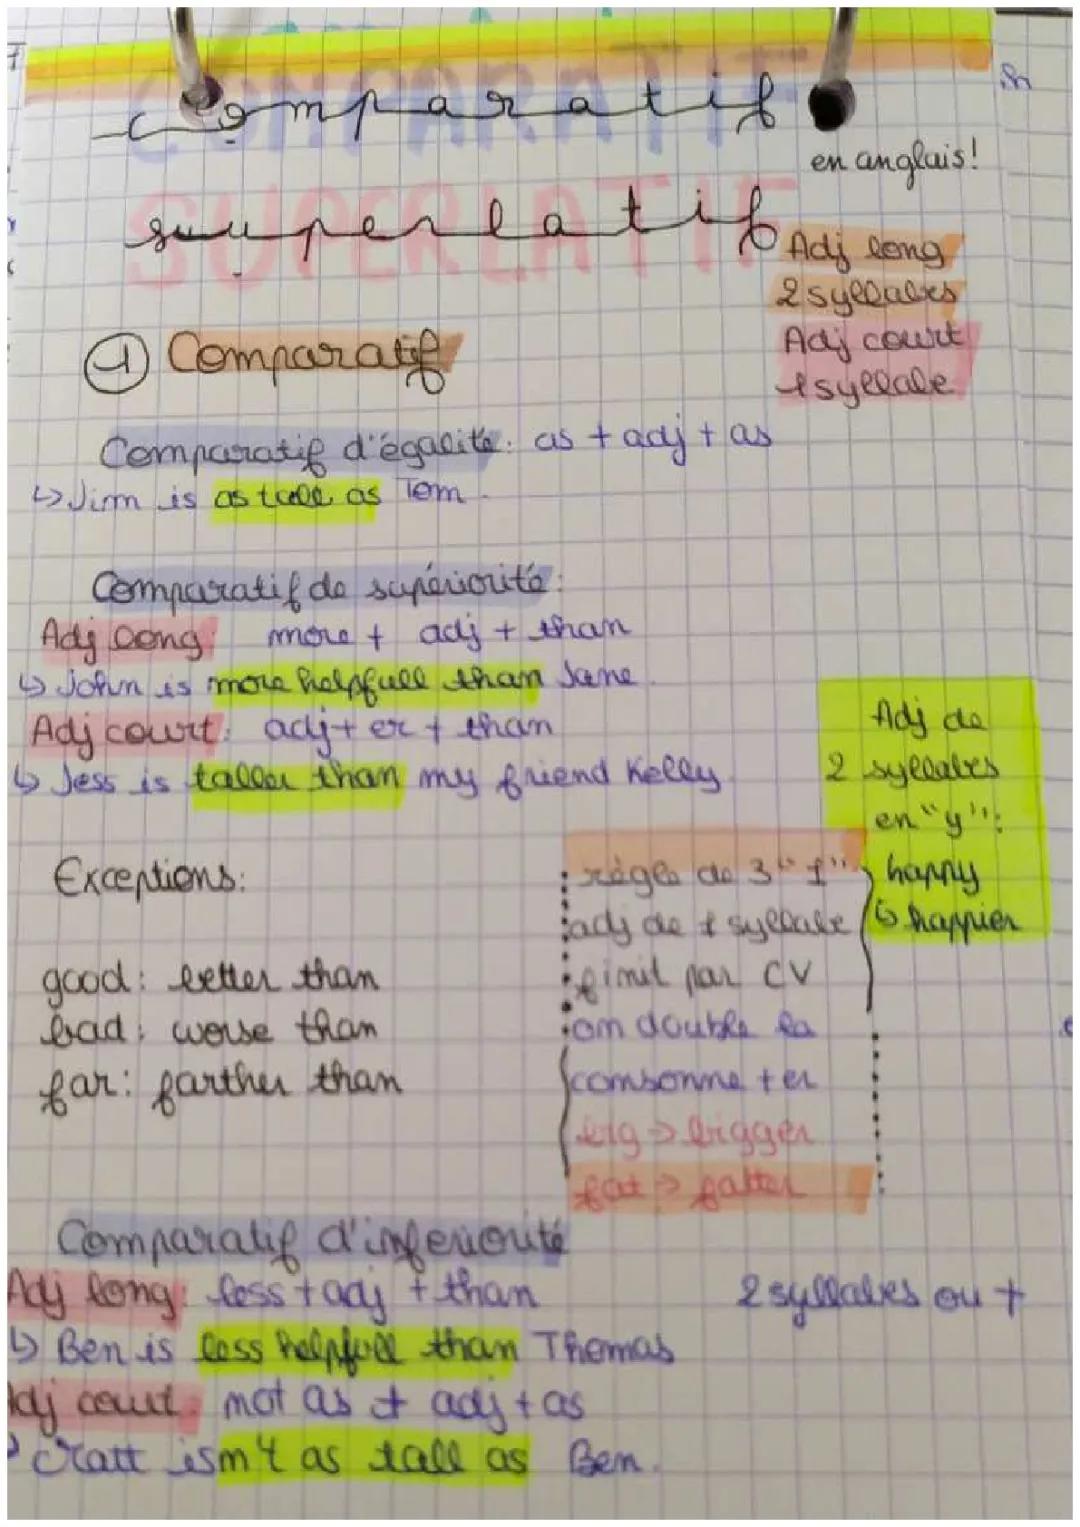 COMPARATIF
comparatif
en anglais!
SUPERLATIF
superlatif
Adj long
2 syllabes
Adj court
1 syllabe
① Comparatif
Comparatif d'égalité: as + adj + as
↳ Jim is as tall as Tom.
Comparatif de supériorité:
Adj long: more + adj + than
↳ John is more helpfull than Jane.
Adj court: adj + er + than
↳ Jess is taller than my friend Kelly.
Adj de
2 syllabes
en "y":
happy
↳ happier
Exceptions:
good: better than
bad: worse than
far: farther than
règle de 3 "1"
adj de 1 syllabe
finit par CV
on double la
consonne + er
big → bigger
fat → fatter
Comparatif d'inferiorité
Adj long: less + adj + than
2 syllabes ou +
↳ Ben is less helpfull than Thomas
Adj court: not as + adj + as
isn't as tall as Ben.